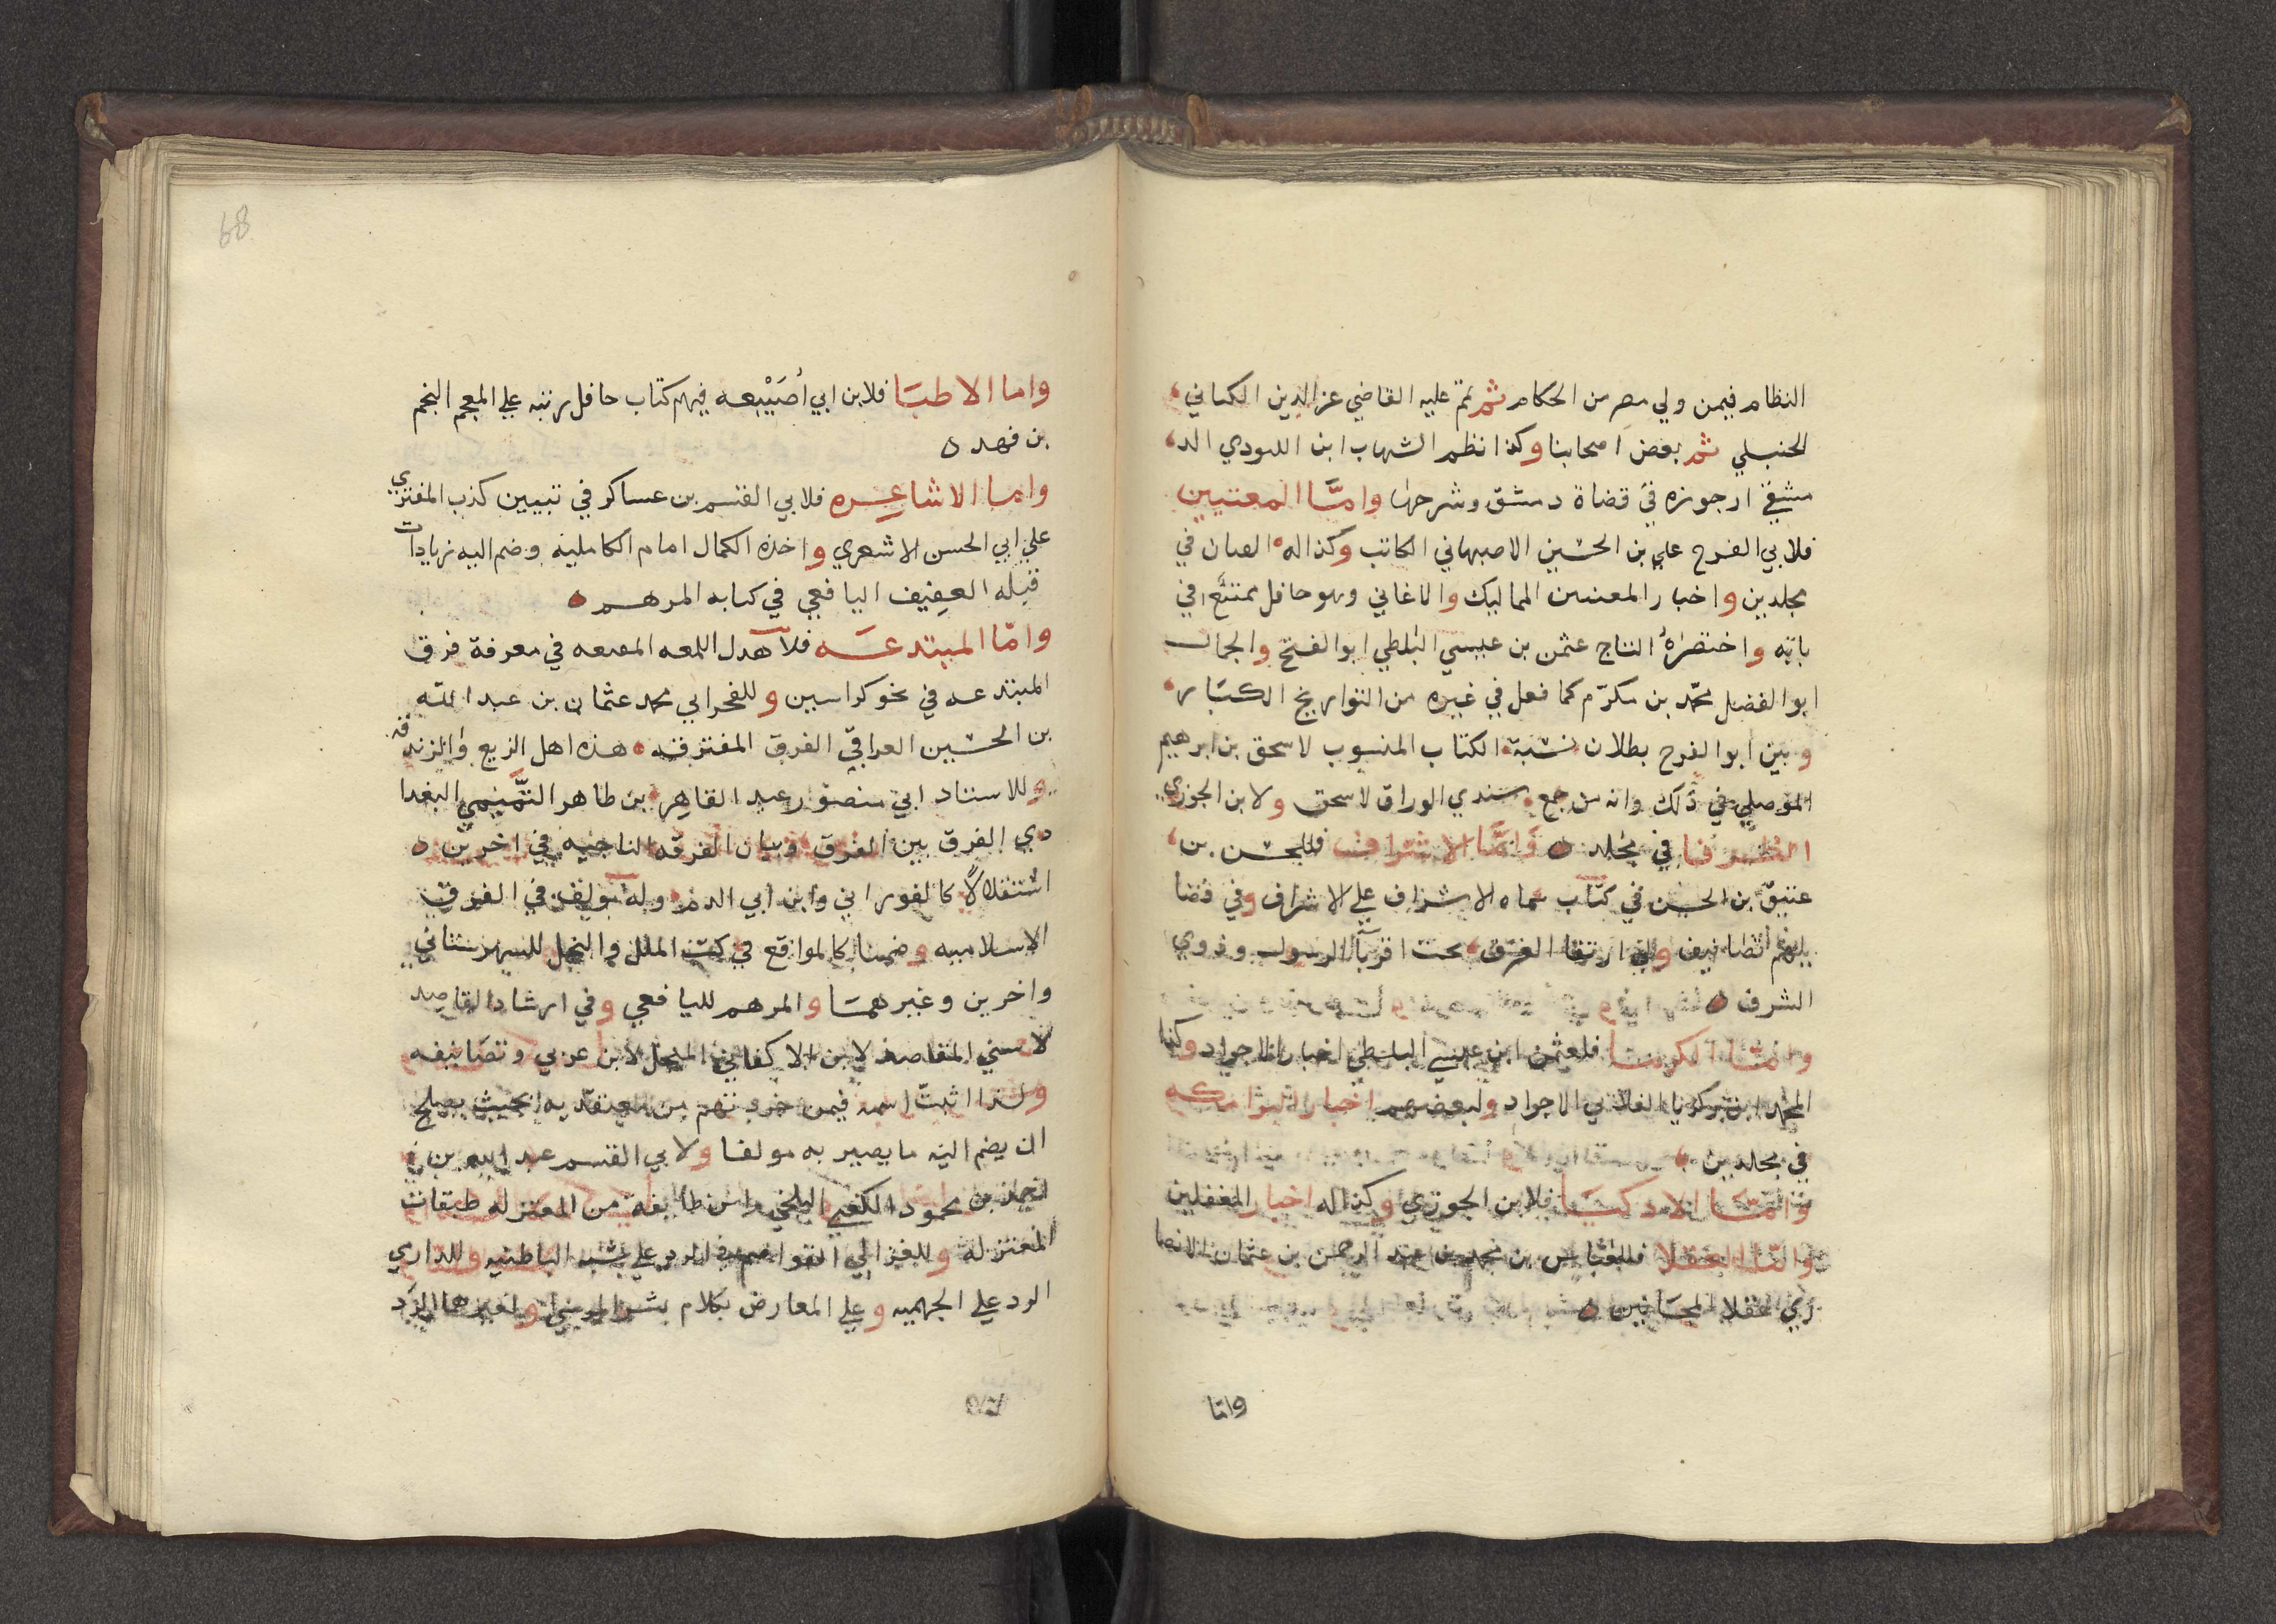 النظام فيمن ولي مصر من الحكام ثم تمم عليه القاضي عز الدين الكناني
الحنبلي ثم بعض اصحابنا وكذا نظم الشهاب ابن اللبودي الد
مشقي ارجوزه في قضاة دمشق وشرحها وامَّا المغنيين
فلابي الفرج علي بن الحسين الاصبهاني الكاتب وكذا له القيان في
مجلدين واخبار المغنيين المماليك والاغاني وهو حافل ممتع في
بابه واختصرهُ التاج عثمن بن عيسي البلطي ابو الفتح والجمال
ابو الفضل محمّد بن مكرّم كما فعل في غيره من التواريخ الكبَار
وبين ابو الفرج بطلان نسبة الكتاب المنسوب لاسحق بن ابرهيم
الموصلي في ذلك وانه من جمع سندي الوراق لاسحق ولابن الجوزي
الظرفا في مجلد وَامَّا الاشراف فللحسن بن
عتيق بن الحسين في كتاب سماه الاشراف علي الاشراف وفي فضا
يلهم تصانيف وله ارتقا الغرف بحب اقربآ الرسول وذوي
الشرف
وامَّا الكرما فلعثمن ابن عيسي البلطي اخبار الاجواد وكذا
لمحمد ابن زكريا الغلابي الاجواد ولبعضهم اخبار البرامكه
في مجلدين
وامّا الاذكيَا فلابن الجوزي وكذا له اخبار المغفلين
وامّا العقلا فللعبّاس بن محمد بن عبد الرحمن بن عثمان الانصا
ري عقلا المجَانين
وامّا
68
واما الاطبَا فلابن ابي أصَيْبعه فيهم كتاب حافل رتبه علي المعجم النجم
بن فهد
واما الاشاعِره فلابي القسم بن عساكر في تبيين كذب المفتري
علي ابي الحسن الاشعري واخذه الكمال امام الكامليه وضم اليه زيادات
قبله العفيف اليافعي في كتابه المرهم
وامّا المبتدعَه فلآهدل اللمعه المقنعه في معرفة فرق
المبتدعه في نحو كراسين وللفخر ابي محمد عثمان بن عبد الله
بن الحسين العراقيّ الفرق المفترقه هذه اهل الزيع والزندقه
وللاستاد ابي منصور عبد القاهِر بن طاهر التَّميمي البغدا
دي الفرق بين الفرق وبيان الفرقه الناجيه في اخرين
استقلالًا كالفوراني وابن ابي الدم وله تواليف في الفرق
الاسلاميه وضمنا كالمواقع في كتب الملل والنحل للشهرستاني
واخرين وغيرهمَا والمرهم لليافعي وفي ارشاد القاصد
لاسني المقاصد لابن الاكفاني النحل لابن عربي وتصَانيفه
ولهذا اثبتّ اسمه فيمن بحيث يصلح
ان يضم اليه ما يصير به مولفا ولابي القسم عبد الله بن
احمد بن محمود الكعبي البلخي راس طايفة من المعتزله طبقات
المعتزله وللغزالي القواصم في الرد علي شبه الباطنيه وللداري
الرد علي الجهميه وعلي المعارض بكلام بشر المريسي ولغيرها الرد